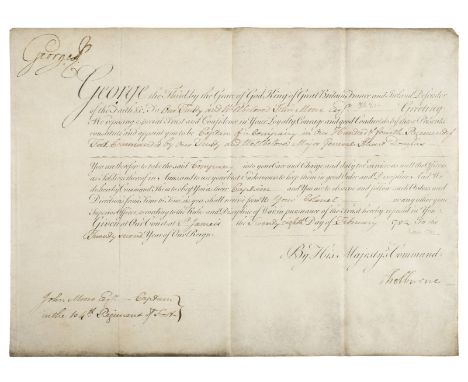 George R
George the Third by the Grace of God, King of Great Britain France and Ireland Defender
of the Faith &c. To Our Trusty and Welbeloved John Esqr. Greeting
We reposing especial Trust and Confidence in Your Loyalty Courage and good Conduct do by these Presents
constitute and appoint you to be Captain of a Company in Our Hundred & fourth Regiment of
Foot Commanded by Our Trusty and Welbeloved Major General Douglas
You are therefore to take the said Company into your Care and Charge and duly to Exercise as well the Officers
as Soldiers thereof in Arms, and to use your best Endeavours to keep them in good Order and Discipline, And We
do hereby Command them to obey You as their Captain and You are to observe and follow such Orders and
Directions from Time to Time as you shall receive from Us Your Colonel or any other your
Superior Officer according to the Rules and Discipline of War in pursuance of the Trust hereby reposed in You
Given at Our Court at St. James's the Twenty eighth Day of February 1782 In the
Twenty second Year of Our Reign.
By His Majesty's Command
John Esqr. - Captain
in the 104th Regiment of Foot